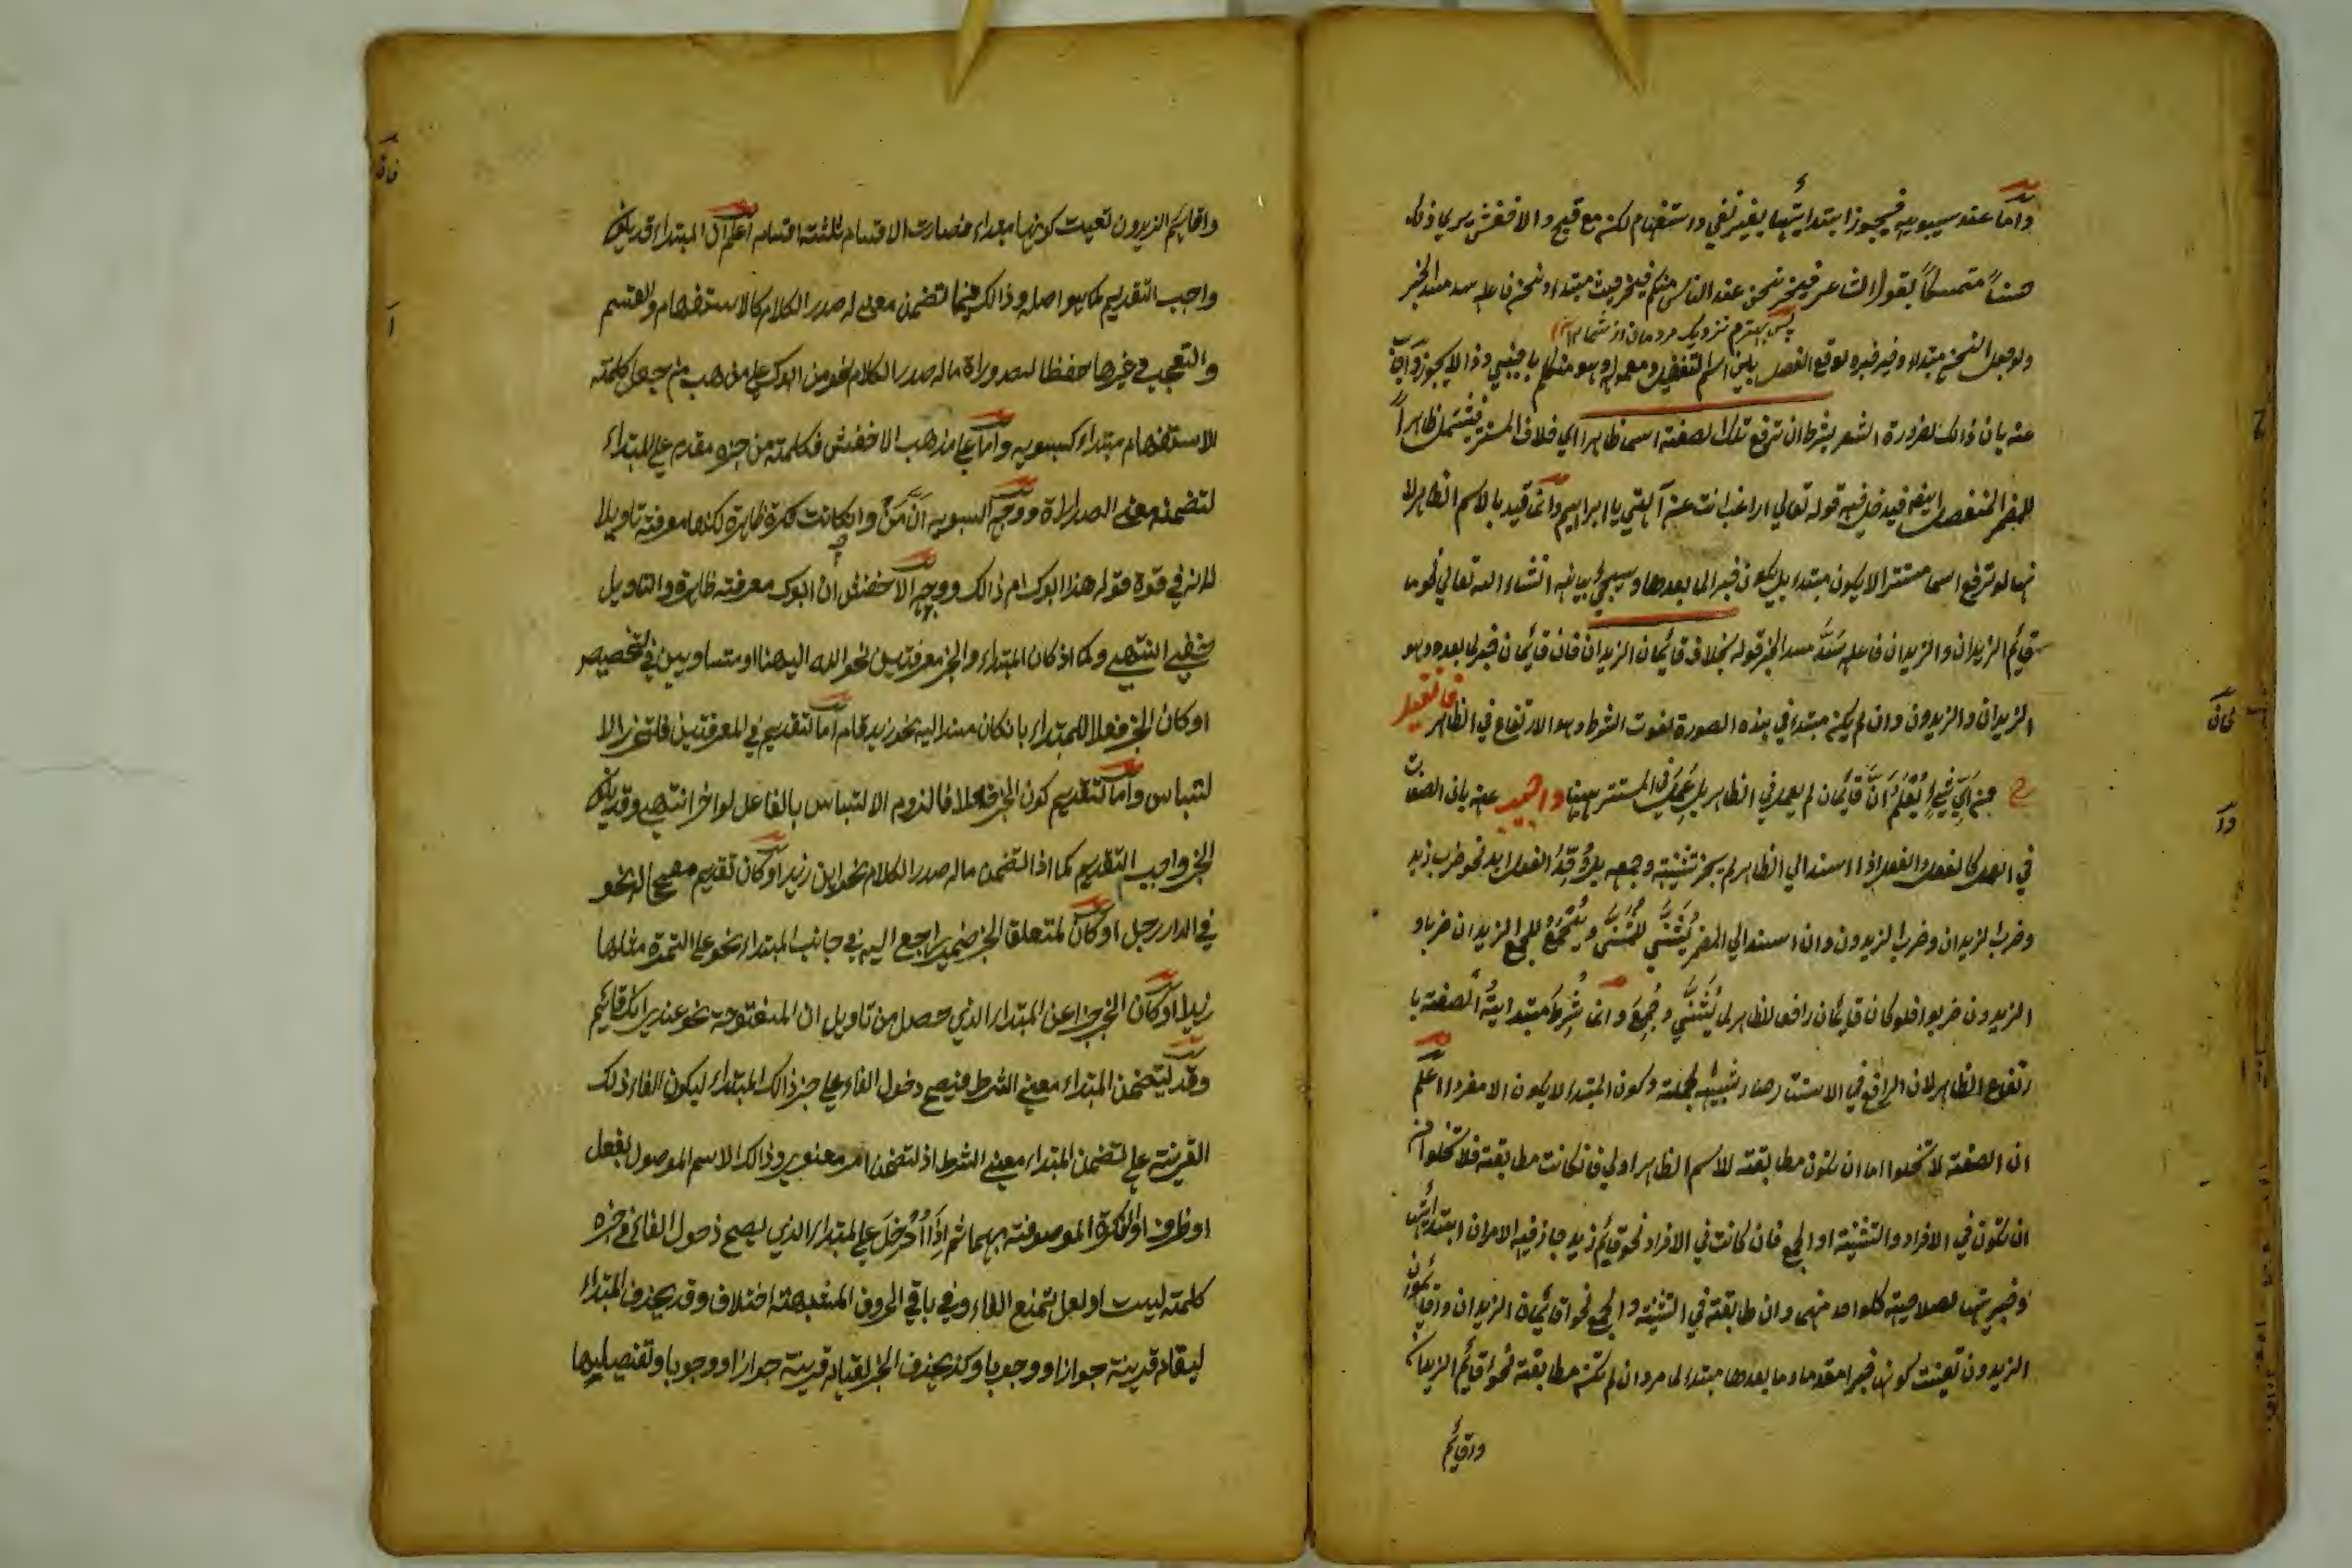 واما عند سيبويه فيجوز ابتدائيتها بغير نفي واستفهام لكنه مع قبح والاخفش يري ذلك
حسناً متمسكاً بقول الشاعر فخير نحن عند الناس منكم فخير مبتداء ونحن فاعله سد مسد الخبر
پس بهترم نزديك مردمان از شما
ولو جعل نحن مبتداء وخير خبره لوقع الفصل بين اسم التفضيل ومعموله وهو منكم باجنبي وذا لا يجوز واجاب
عنه بان ذالك لضرورة الشعر بشرط ان ترفع تلك الصفته اسما ظاهرا اي خلاف المستتر فيشتمل ظاهراً
للمضمر المنفصل ايضا فيدخل فيه قوله تعالي اراغب انت عن آلهتي يا ابراهيم وانما قيد بالاسم الظاهر لا
نها لو ترفع اسما مستترا لا يكون مبتداء بل يكون خبرا لما بعدها وسيجئ بيانه انشاء الله تعالي نحو ما
قايم الزيدان والزيدان فاعله سَدَّ مسد الخبر قوله بخلاف قايمان الزيدان فان قايمان خبر لما بعده وهو
الزيدان والزيدون وان لم يكن مبتداء في هذه الصورة لفوت الشرط وهو الارتفاع في الظاهر فان قيل
من اي شيءٍ يُعْلَمُ اَنَّ قايمان لم يعمل في الظاهر بل عَمِلَ في المستتر ههنا واجيب عنه بان الصفت
في العمل كالفعل والفعل اذا اسند الي الظاهر لم يجز تثنيته وجمعه بل وُحِّدَ الفعل ابدا نحو ضرب زيد
وضرب الزيدان وضرب الزيدون وان اسند الي المضمر يُثَنّي للمُثَنّي ويُجمَعُ للجمع الزيدان ضربا و
الزيدون ضربوا فلو كان قايمان رافعا لظاهر لما يُثَنّي وجُمِعَ وانما شُرِطَ مبتدايةُ الصفته با
رتفاع الظاهر لان الرافع في الاستتار صار شبيه بجملة وكون المبتداء لا يكون الا مفردا اعلم
ان الصفته لا تخلوا اما ان تكون مطابقته للاسم الظاهر اولي فان كانت مطابقته فلا تخلوا من
ان تكون في الافراد والتثنيته او الجمع فان كانت في الافراد نحو قايم زيد جاز فيه الامران ابتدايتها
وخبريتها لصلاحيته كلواحد منهما وان طابقته في التثنيته والجمع نحو اقايمان الزيدان واقايمون
الزيدون تعينت كونها خبرا مقدما وما بعدها مبتداء لما مر وان لم تكن مطابقته نحو اقايم الزيدان
واقايم
واقايم الزيدون تعينت كونها مبتداء فصارت الاقسام ثلثته اقسام اعلم ان المبتداء قد يكون
واجب التقديم كما هو اصله وذالك فيما تضمن معني له صدر الكلام كالاستفهام والقسم
والتعجب وغيرها حفظا لصدوراة ماله صدر الكلام نحو من ابوك علي مذهب من جعل كلمته
الاستفهام مبتداء كسيبويه واما علي مذهب الاخفش فكلمته من خبره مقدم علي المبتداء
لتضمنه معني الصدرارة ووجه السيبويه ان مَنْ وانكانت نكرة ظاهرة لكنها معرفته تاويلا
لانه في قوة قوله هذا ابوك ام ذالك ووجه الاخفش ان ابوك معرفته ظاهرة والتاويل
خفي انتهي وكما اذ كان المبتداء والخبر معرفتين نحو الله الهنا او متساويين في تخصيص
اوكان الخبر فعلا للمبتداء بانكان مسندا اليه نحو زيد قام اما التقديم في المعرفتين فلتحرز الا
لتباس واما لتقديم كون الخبر فعلا فالزوم الالتباس بالفاعل لو اخر انتهي وقد يكون
الخبر واجب التقديم كما اذا تضمن ماله صدر الكلام نحو اين زيد او كان تقديم مصححا له نحو
في الدار رجل او كان لمتعلق الخبر ضمير راجع اليه في جانب المبتداء نحو علي التمرة مثلها
زبدا او كان الخبر خبرا عن المبتداء الذي حصل من تاويل ان المفتوحة نحو عندي انك قايم
وقد يتضمن المبتداء معني الشرط فيصح دخول الفاء علي خبر ذالك المبتداء ليكون الفاء ذلك
القرينته علي تضمن المبتداء معني الشرط اذ تضمن امر معنوي وذالك الاسم الموصول بفعل
او ظرف او النكرة الموصوفته بهما ثم اِذَا اُدْخِلَ علي المبتداء الذي يصح دخول الفاء في خبره
كلمته ليت او لعل تمنع الفاء وفي باقي الحروف المشبهته اختلاف وقد يحذف المبتداء
لبقاء قرينته جوازا ووجوبا وكذا يحذف الخبر لقيام قرينته جوازا ووجوبا وتفصيلها